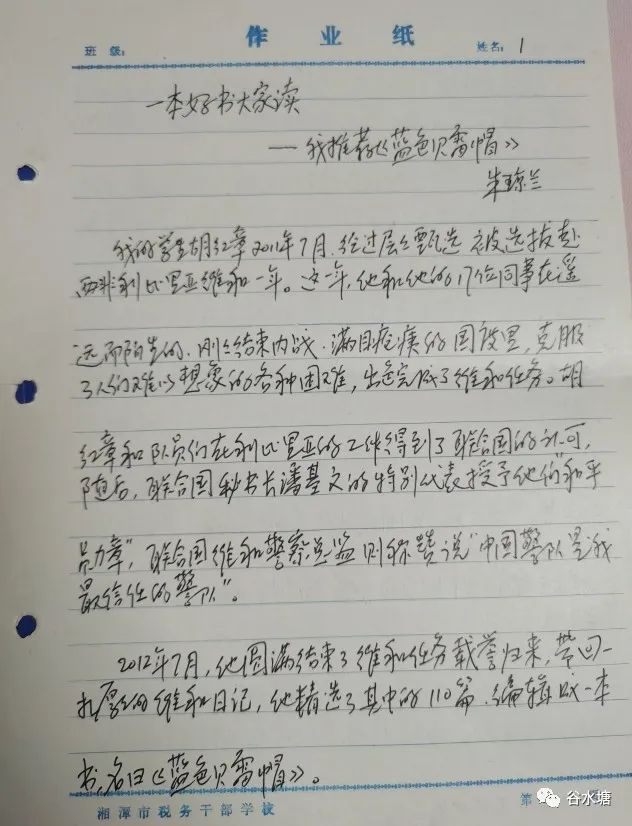 作业纸
班级: 姓名: 1
一本好书大家读
——我推荐《蓝色贝雷帽》
朱琼兰
我的学生胡红章2011年7月.经过层层甄选 被选拔赴
西非利比里亚维和一年。这一年,他和他的17位同事在遥
远而陌生的.刚刚结束内战.满目疮痍的国度里,克服
了人们难以想象的各种困难,出色完成了维和任务。胡
红章和队员们在利比里亚的工作得到了联合国的认可,
随后,联合国秘书长潘基文的特别代表授予他们"和平
勋章",联合国维和警察总监则称赞说"中国警队是我
最信任的警队"。
2012年7月,他圆满结束了维和任务载誉归来,带回一
扎厚厚的维和日记,他精选了其中的110篇.编辑成一本
书,名曰《蓝色贝雷帽》。
湘潭市税务干部学校 第
谷水塘